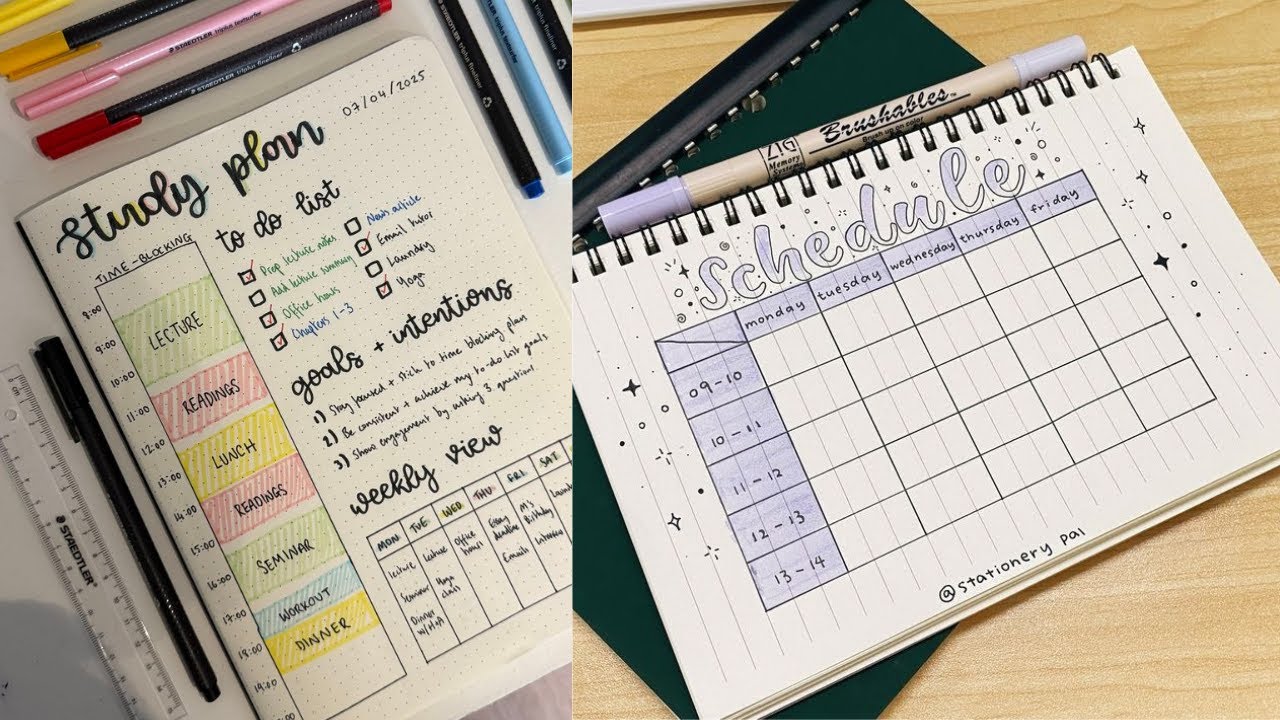 STAEDTLER triplus fineliner
STAEDTLER triplus fineliner
triplus fineliner
07/04/2025
study plan
TIME-BLOCKING
9:00
9:00
10:00
11:00
12:00
13:00
14:00
15:00
16:00
17:00
18:00
19:00
LECTURE
READINGS
LUNCH
READINGS
SEMINAR
WORKOUT
DINNER
to do list
Prep lecture notes
Add lecture
Office hours
Chapters 1-3
News article
Email tutor
Laundry
Yoga
goals + intentions
1) Stay focused + stick to time blocking plan
2) Be consistent + achieve my to-do list goals
3) Show engagement by asking 3 question!
weekly view
MON TUE WED THU FRI SAT
lecture
Seminar
Dinner
lecture
Yoga class
Office hours
Essay deadline
Emails
M's Birthday
STAEDTLER
Brushables
Brush up on color
Memory System
schedule
monday tuesday wednesday thursday friday
09-10
10-11
11-12
12-13
13-14
@stationery pal